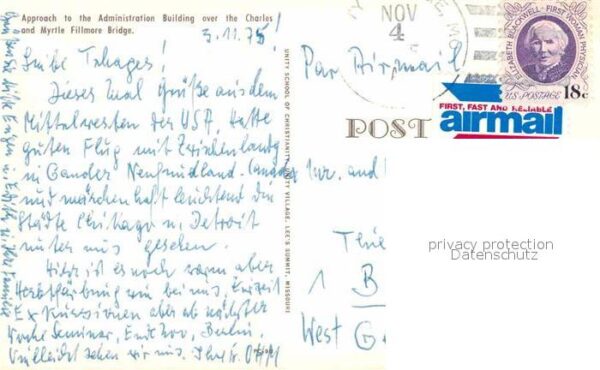 Approach to the Administration Building over the Charles
and Myrtle Fillmore Bridge.
3.11.75
Liebe
Dieses Mal Grüße aus dem
Mittelwesten der USA. Hatte
guten Flug mit Zwischenlandg
in Gander Neufundland. (Canada)
und märchenhaft leuchtend die
Städte Chikago u. Detroit
unter mir gesehen.
Hier ist es noch warm aber
Herbstfärbung wie bei uns.
Exkursionen aber ab nächster
Woche Seminar, Berlin.
Vielleicht sehen wir uns. Ihr
Grüßen Sie bitte u. Ihre Familie
UNITY SCHOOL OF CHRISTIANITY, UNITY VILLAGE, LEE'S SUMMIT, MISSOURI
Par Airmail
NOV
4
ELIZABETH BLACKWELL · FIRST WOMAN PHYSICIAN
US POSTAGE 18c
FIRST, FAST AND RELIABLE
airmail
POST
und
1 B
West G
privacy protection
Datenschutz